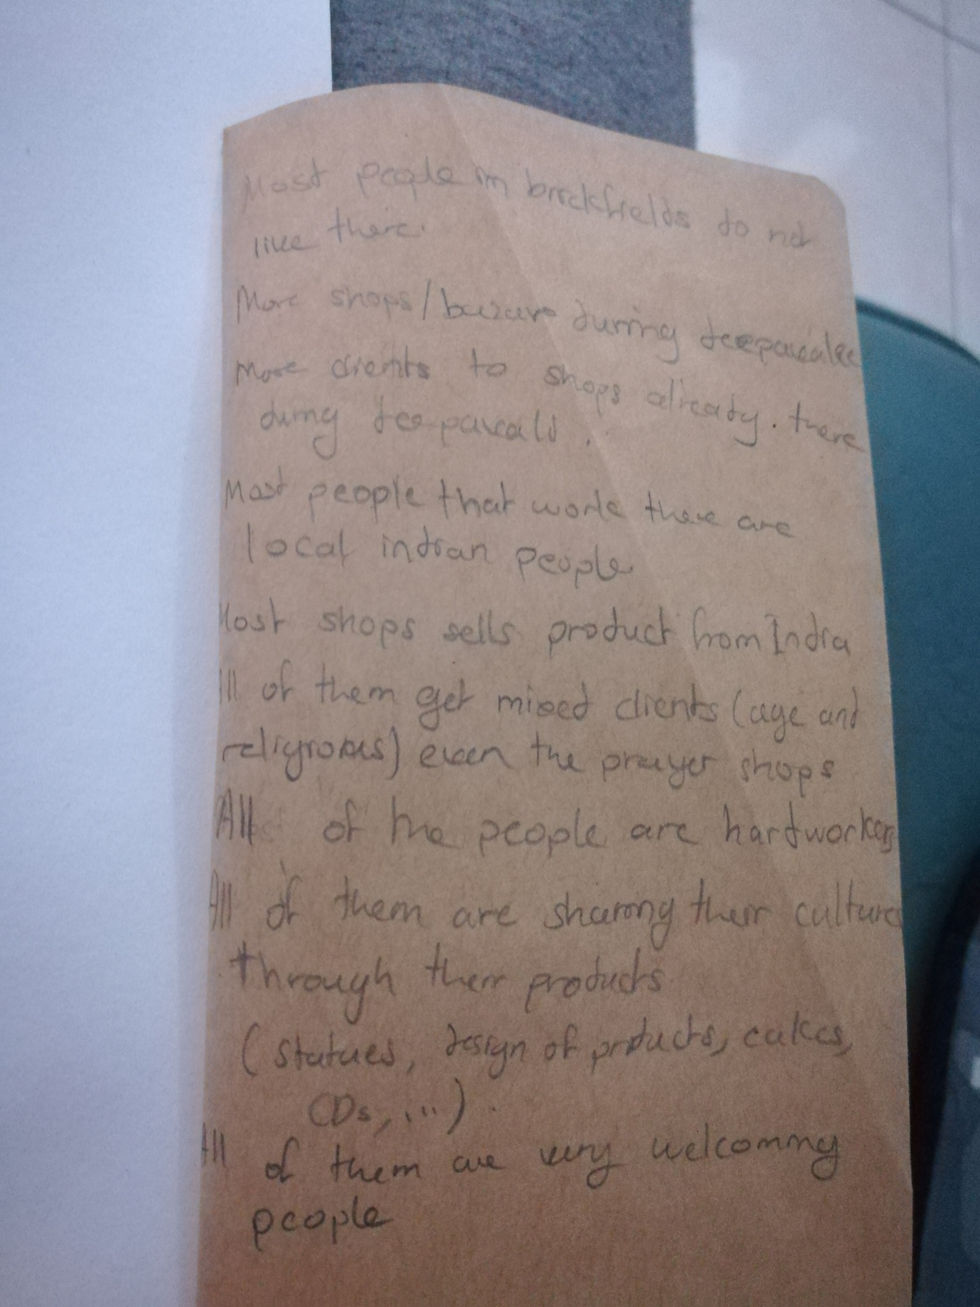 Most people in brickfields do not
live there.
More shops/bazars during deepavalee
More clients to shops already there
during deepavali.
Most people that work there are
local indian people
Most shops sells product from India
All of them get mixed clients (age and
religions) even the prayer shops
All of the people are hardworkers
All of them are sharing their cultures
through their products
(statues, design of products, cakes,
CDs, ...).
All of them are very welcoming
people